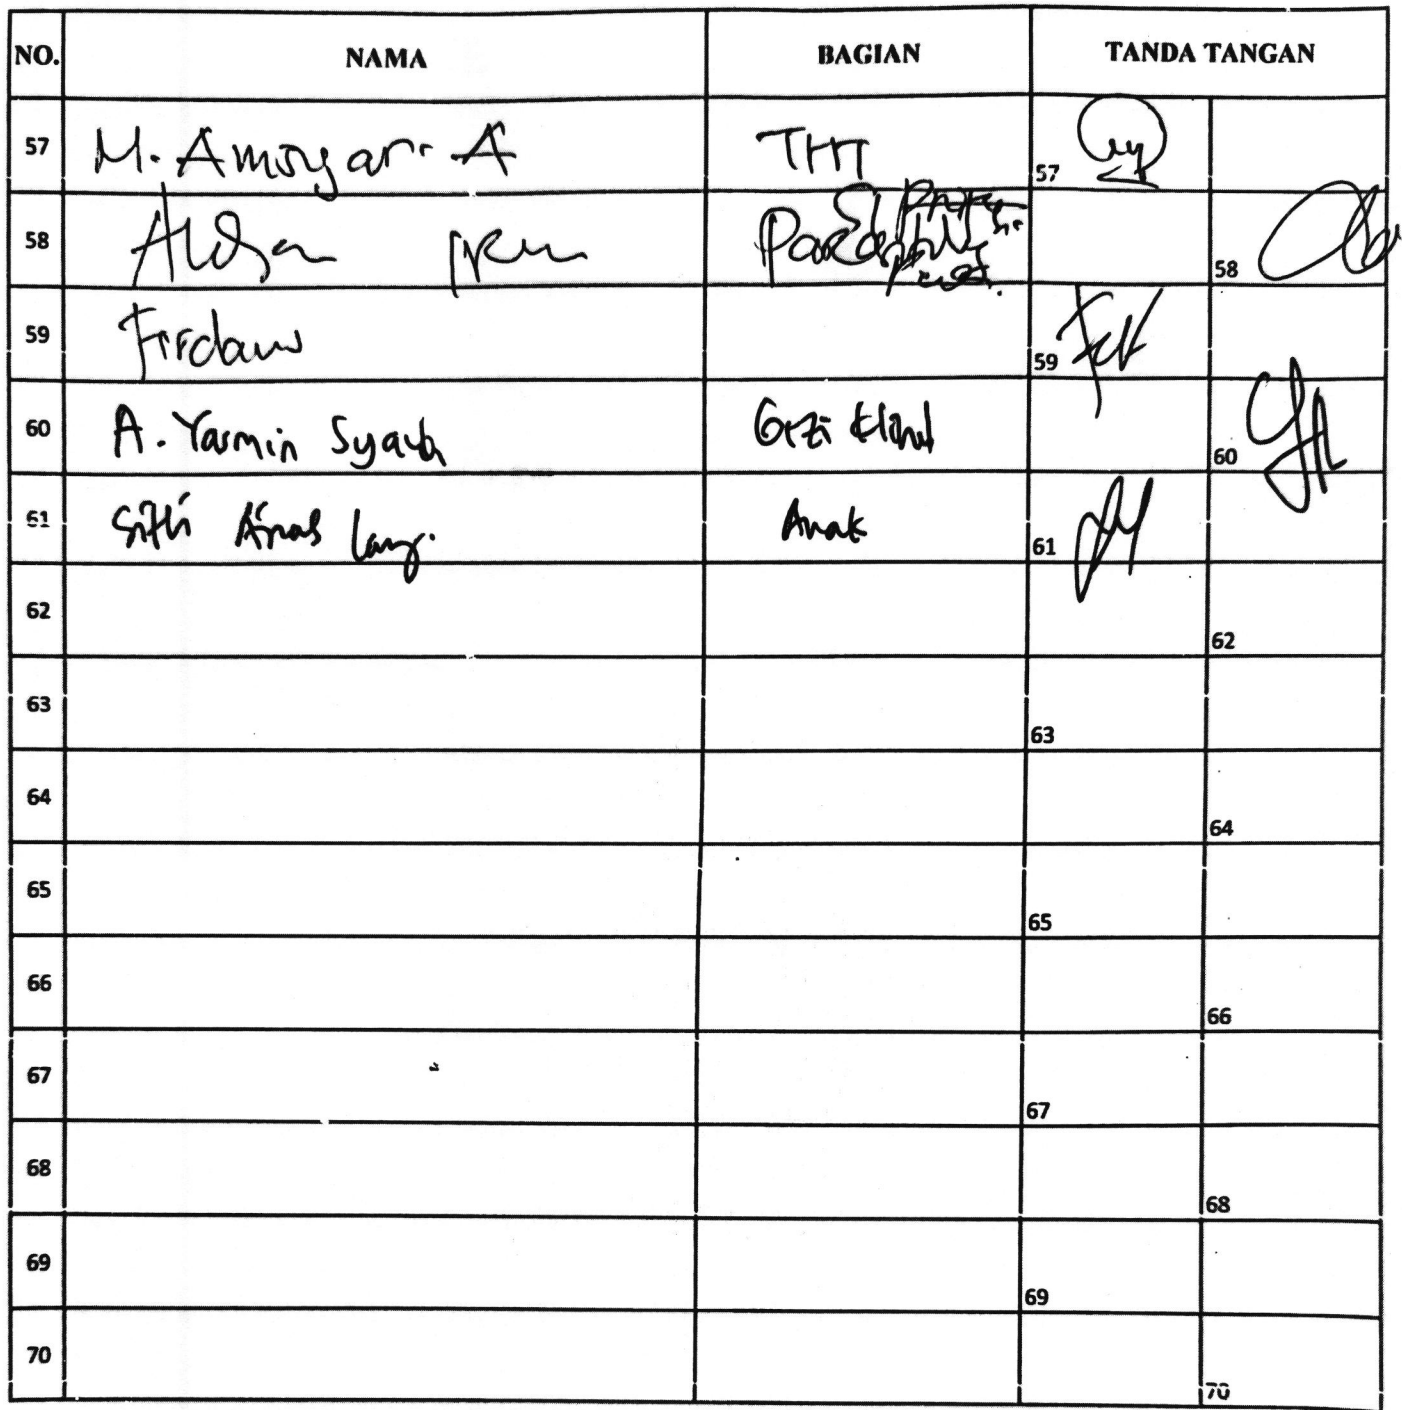 NO. NAMA BAGIAN TANDA TANGAN
57 M. Amsyar A THT 57
58 58
59 Firdaus 59
60 A. Yasmin Gizi Klinik 60
61 Sitti Anak 61
62 62
63 63
64 64
65 65
66 66
67 67
68 68
69 69
70 70